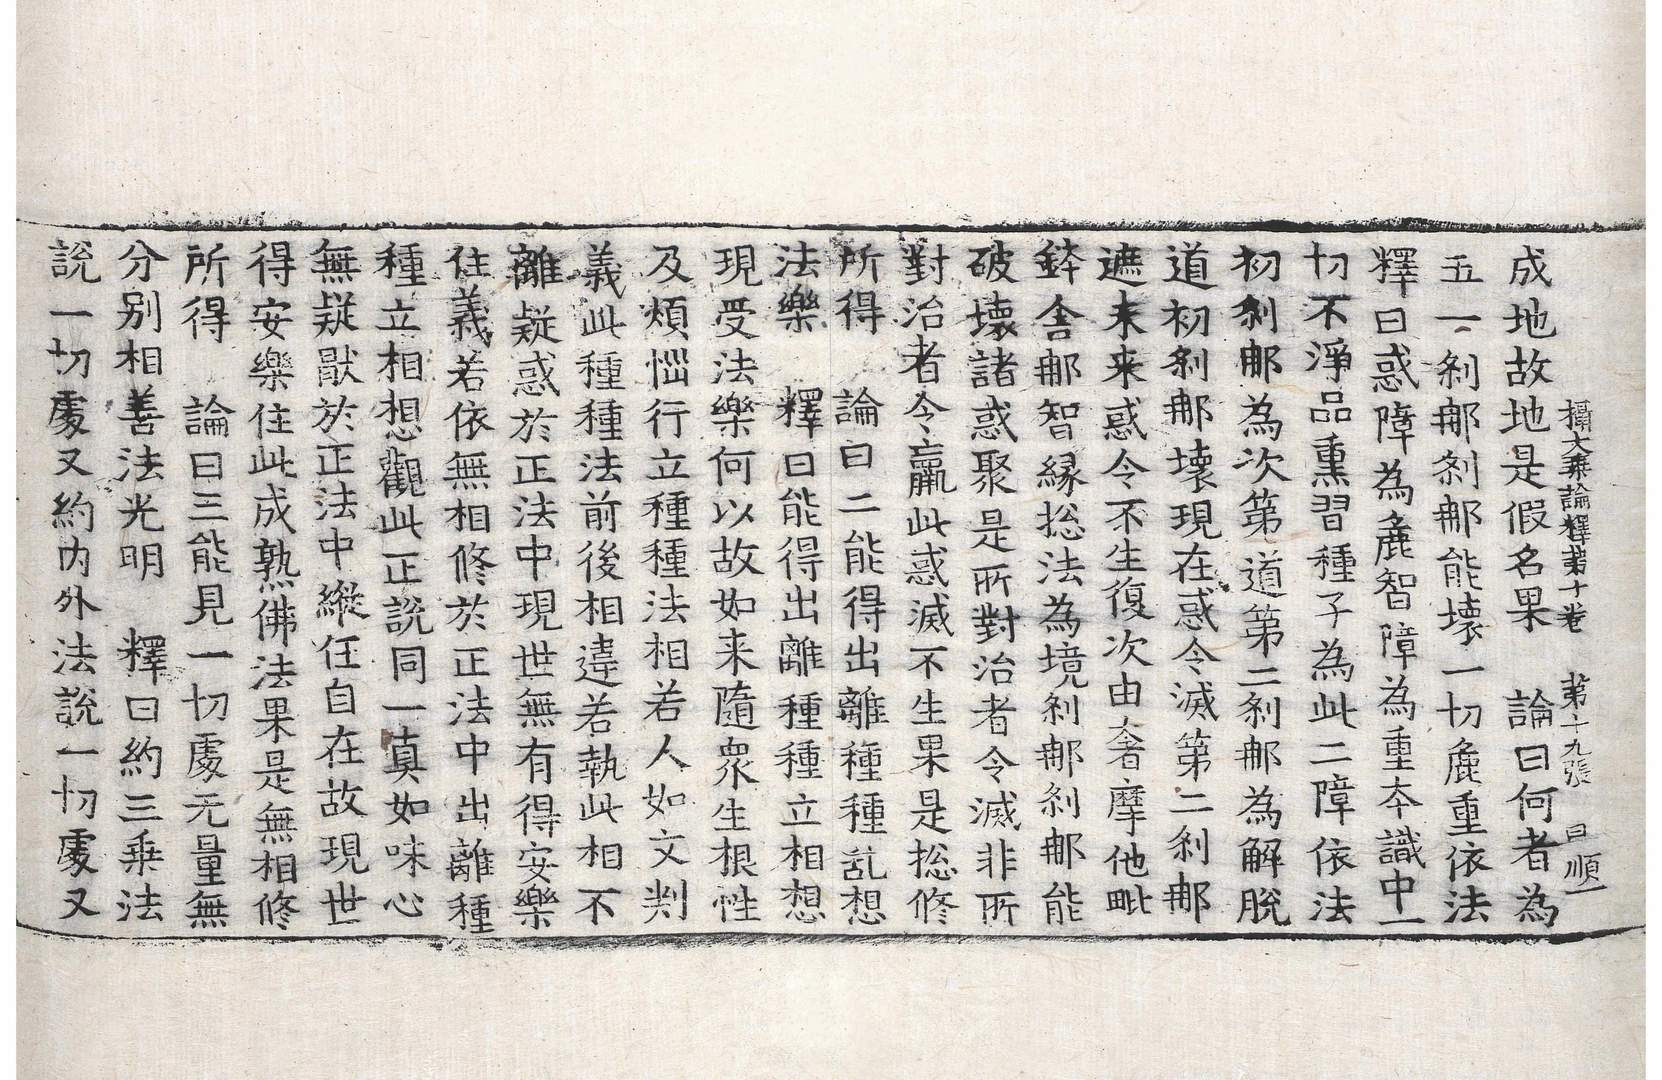 攝大乗論釋苐十卷 苐十九張 曰順一
成地故地是假名果 論曰何者為
五一剎那剎那能壞一切麁重依法
釋曰惑障為麁智障為重夲識中一
切不淨品熏習種子為此二障依法
初剎那為次第道第二剎那為解脫
道初剎那壞現在惑令滅第二剎那
遮未来惑令不生復次由奢摩他毗
鉢舎那智縁捴法為境剎那剎那能
破壞諸惑聚是所對治者令滅非所
對治者令羸此惑滅不生果是捴修
所得 論曰二能得出離種種乱想
法樂 釋曰能得出離種種立相想
現受法樂何以故如来隨衆生根性
及煩惱行立種種法相若人如文判
義此種種法前後相違若執此相不
離疑惑於正法中現世無有得安樂
住義若依無相修於正法中出離種
種立相想觀此正說同一真如味心
無疑猒於正法中縱任自在故現世
得安樂住此成熟佛法果是無相修
所得 論曰三能見一切處无量無
分别相善法光明 釋曰約三乗法
說一切處又約内外法說一切處又